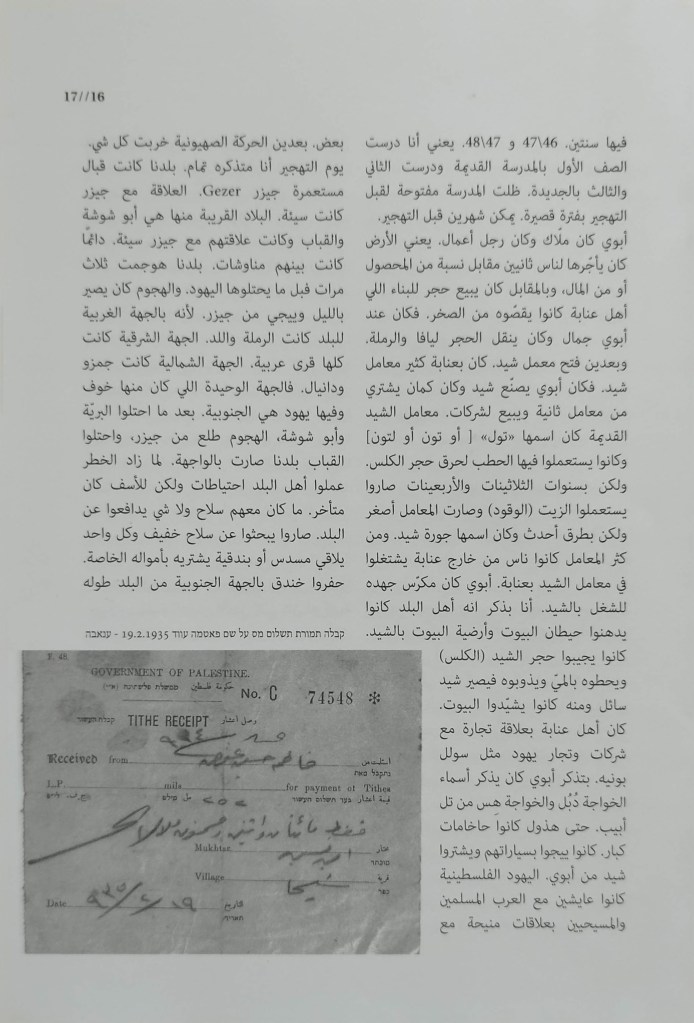 17//16
فيها سنتين. 46\47 و 47\48. يعني أنا درست
الصف الأول بالمدرسة القديمة ودرست الثاني
والثالث بالجديدة. ظلت المدرسة مفتوحة لقبل
التهجير بفترة قصيرة. يمكن شهرين قبل التهجير.
أبوي كان ملّاك وكان رجل أعمال. يعني الأرض
كان يأجّرها لناس ثانيين مقابل نسبة من المحصول
أو من المال، وبالمقابل كان يبيع حجر للبناء اللي
أهل عنابة كانوا يقصّوه من الصخر. فكان عند
أبوي جمال وكان ينقل الحجر ليافا والرملة.
وبعدين فتح معمل شيد. كان بعنابة كثير معامل
شيد. فكان أبوي يصنّع شيد وكان كمان يشتري
من معامل ثانية ويبيع لشركات. معامل الشيد
القديمة كان اسمها «تول» [ أو تون أو لتون]
وكانوا يستعملوا فيها الحطب لحرق حجر الكلس.
ولكن بسنوات الثلاثينات والأربعينات صاروا
يستعملوا الزيت (الوقود) وصارت المعامل أصغر
ولكن بطرق أحدث وكان اسمها جورة شيد. ومن
كثر المعامل كانوا ناس من خارج عنابة يشتغلوا
في معامل الشيد بعنابة. أبوي كان مكرّس جهده
للشغل بالشيد. أنا بذكر انه أهل البلد كانوا
يدهنوا حيطان البيوت وأرضية البيوت بالشيد.
كانوا يجيبوا حجر الشيد (الكلس)
ويحطوه بالميّ ويذوبوه فيصير شيد
سائل ومنه كانوا يشيّدوا البيوت.
كان أهل عنابة بعلاقة تجارة مع
شركات وتجار يهود مثل سولل
بونيه. بتذكر أبوي كان يذكر أسماء
الخواجة دُبُل والخواجة هِس من تل
أبيب. حتى هذول كانوا حاخامات
كبار. كانوا ييجوا بسياراتهم ويشتروا
شيد من أبوي. اليهود الفلسطينية
كانوا عايشين مع العرب المسلمين
والمسيحيين بعلاقات منيحة مع
بعض. بعدين الحركة الصهيونية خربت كل شي.
يوم التهجير أنا متذكره تمام. بلدنا كانت قبال
مستعمرة جيزر Gezer. العلاقة مع جيزر
كانت سيئة. البلاد القريبة منها هي أبو شوشة
والقباب وكانت علاقتهم مع جيزر سيئة. دائمًا
كانت بينهم مناوشات. بلدنا هوجمت ثلاث
مرات قبل ما يحتلوها اليهود. والهجوم كان يصير
بالليل وييجي من جيزر. لأنه بالجهة الغربية
للبلد كانت الرملة واللد. الجهة الشرقية كانت
كلها قرى عربية. الجهة الشمالية كانت جمزو
ودانيال. فالجهة الوحيدة اللي كان منها خوف
وفيها يهود هي الجنوبية. بعد ما احتلوا البريّة
وأبو شوشة، الهجوم طلع من جيزر، واحتلوا
القباب بلدنا صارت بالواجهة. لما زاد الخطر
عملوا أهل البلد احتياطات ولكن للأسف كان
متأخر. ما كان معهم سلاح ولا شي يدافعوا عن
البلد. صاروا يبحثوا عن سلاح خفيف وكل واحد
يلاقي مسدس أو بندقية يشتريه بأمواله الخاصة.
حفروا خندق بالجهة الجنوبية من البلد طوله
קבלה תמורת תשלום מס על שם פאטמה עווד 19.2.1935 - ענאבה
F. 48.
GOVERNMENT OF PALESTINE.
حكومة فلسطين ממשלת פלשתינה (א״י)
No. C 74548 ✻
קבלת מעשר TITHE RECEIPT وصل اعشار
٩٣٤
Received from استلمت من
נתקבל מאת
فاطمه
L.P. mils for payment of Tithes
٢٥٢
فقط مائتان واثنين وخمسون ملا
Mukhtar مختار
מוכתר
Village قرية
כפר
Date ١٩/٢/٩٣٥ تاريخ
תאריך